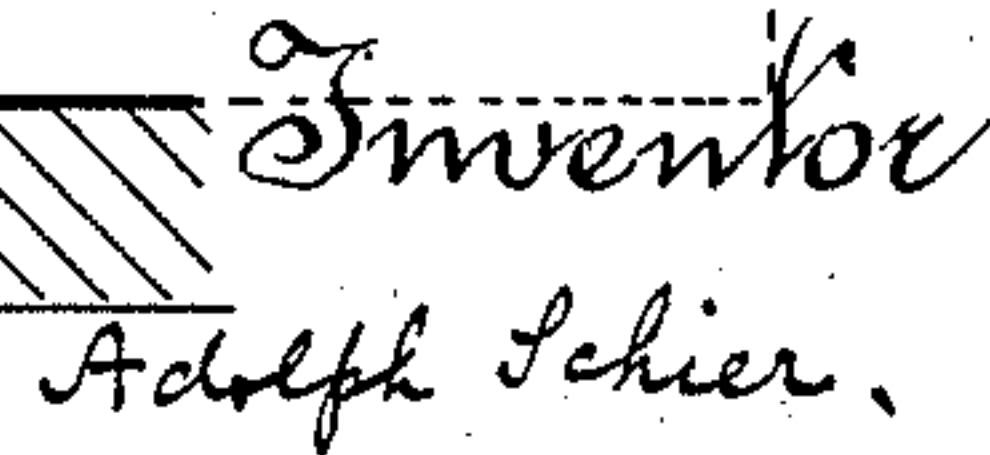 Inventor
Adolph Schier.